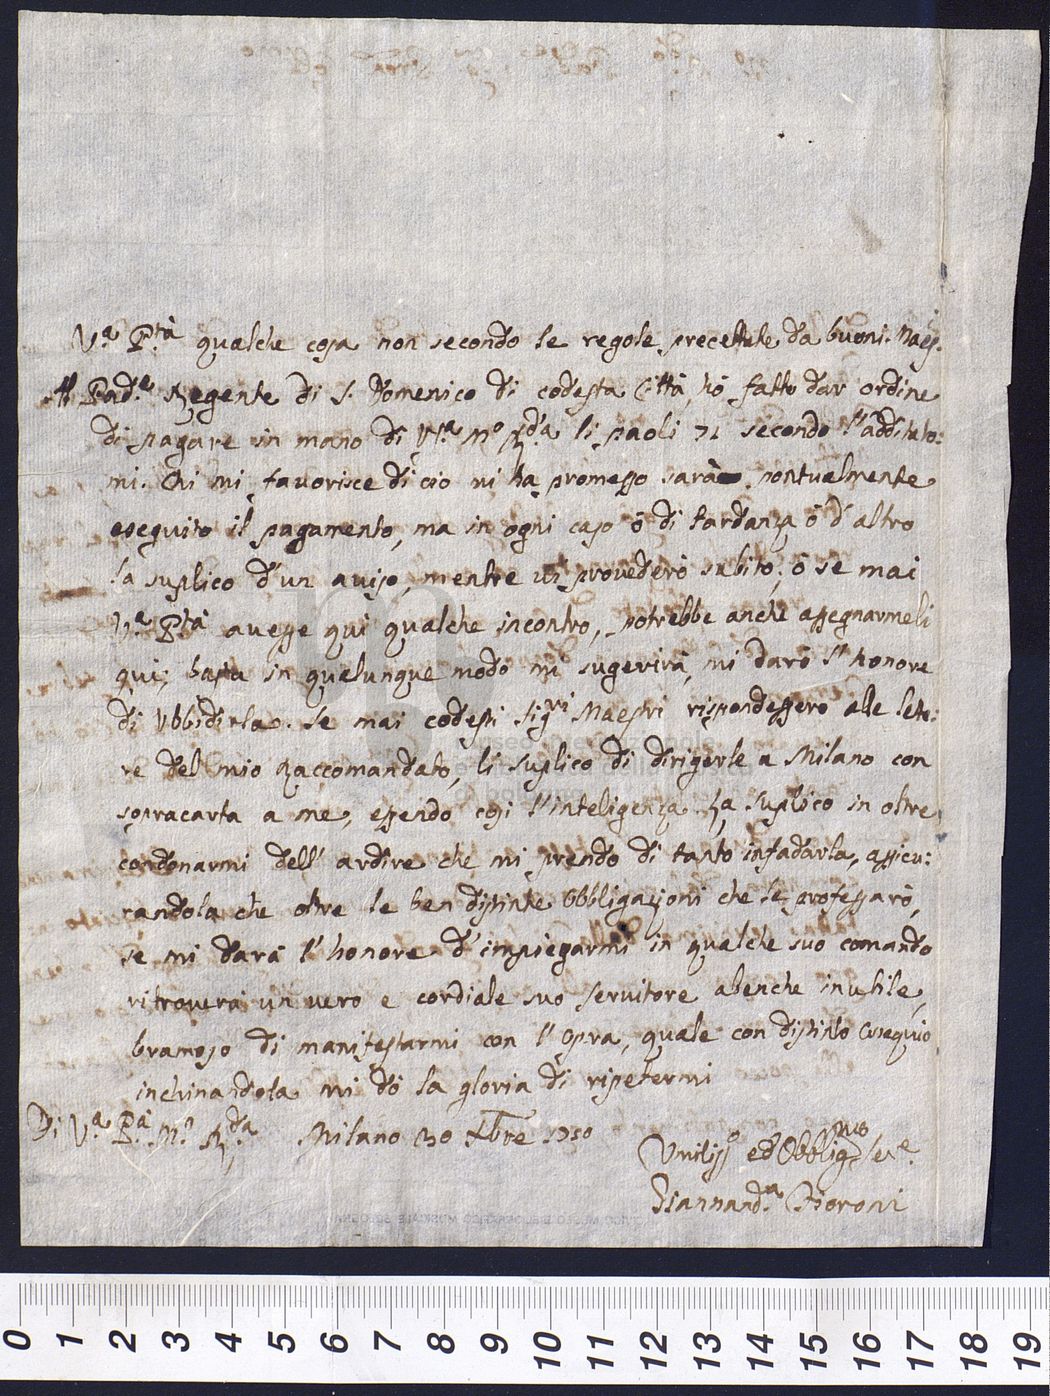 V.a P.tà qualche cosa non secondo le regole precettate da buoni Maes.
Al Pad.e Regente di S. Domenico di codesta Città, hò fatto dar ordine
di pagare in mano di V.a M.o R.da li paoli 71 secondo l'additato:
mi. Chi mi favorisce di cio mi ha promesso sarà pontualmente
eseguito il pagamento, ma in ogni caso ò di tardanza ò d'altro
la suplico d'un aviso, mentre vi provederò subito; ò se mai
V.a P.tà avesse qui qualche incontro, potrebbe anche assegnarmeli
qui; basta in qualunque modo mi sugerirà, mi darò l'honore
di Ubbidirla. Se mai codesti Sig.ri Maestri rispondessero alle lete:
re del mio Raccomandato, li suplico di dirigerle a Milano con
sopracarta a me, essendo così l'inteligenza. La suplico in oltre
condonarmi dell'ardire che mi prendo di tanto infadarla, assicu:
randola che oltre le ben distinte Obbligazioni che le professarò,
se mi darà l'honore d'impiegarmi in qualche suo comando
ritroverà un vero e cordiale suo servitore abenche inutile,
bramoso di manifestarmi con l'opra, quale con distinto Ossequio
inchinandola mi dò la gloria di ripetermi
Di V.a P.tà M.o R.da Milano 30 Xbre 1750
Umiliss.o ed Obblig.mo Ser.e
Giannand.a Fioroni